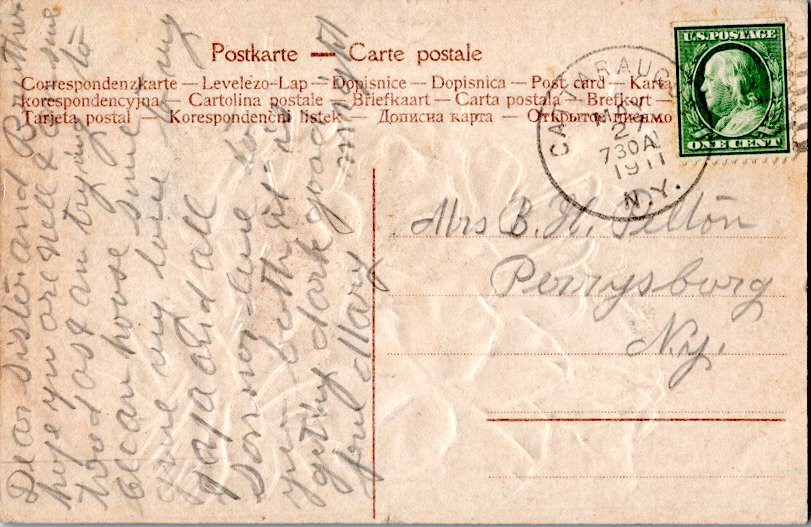 Postkarte — Carte postale
Correspondenzkarte — Levelező-Lap — Dopisnice — Dopisnica — Post card — Karta
korespondencyjna — Cartolina postale — Briefkaart — Carta postala — Brefkort —
Tarjeta postal — Korespondenční lístek — Дописна карта — Открытое письмо
U.S. POSTAGE
ONE CENT
CATTARAUGUS
27
730A
1911
N.Y.
Mrs B. H. Pelton
Perrysburg
Ny.
Dear Sister and Brother
hope you are well &
tired just an trying to
clean house some
done any love to my
papa and all
to
getting dark good night
from Mary